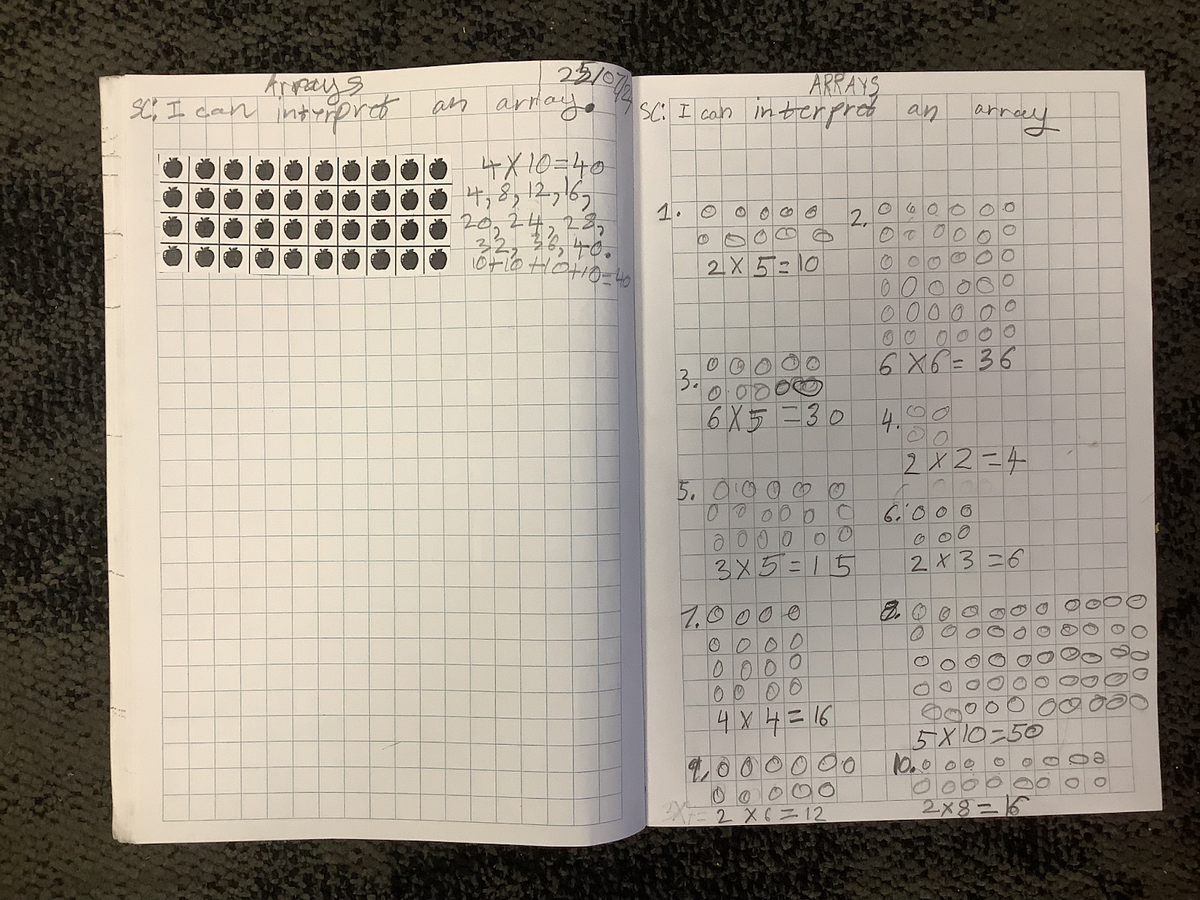 Arrays 25/07/24
SC: I can interpret an array.
4 X 10 = 40
4, 8, 12, 16,
20, 24, 28,
32, 36, 40.
10+10+10+10=40
ARRAYS
SC: I can interpret an array
1.
2 X 5 = 10
2.
6 X 6 = 36
3.
6 X 5 = 30
4.
2 X 2 = 4
5.
3 X 5 = 15
6.
2 X 3 = 6
7.
4 X 4 = 16
8.
5 X 10 = 50
9.
2 X 6 = 12
10.
2 x 8 = 16